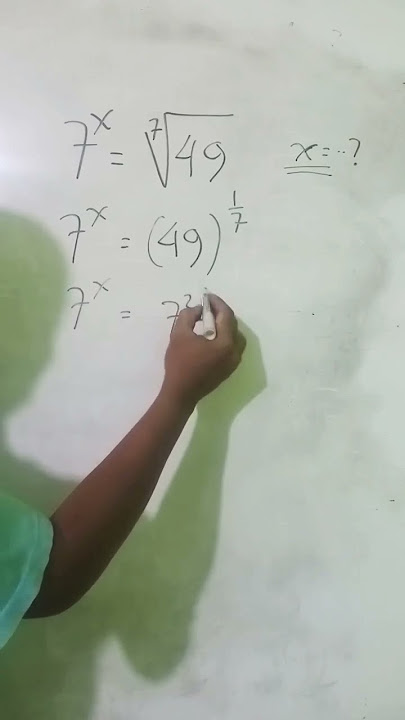 7^x = ⁷√49 x = ..?
7^x = (49)^1/7
7^x = 7^2